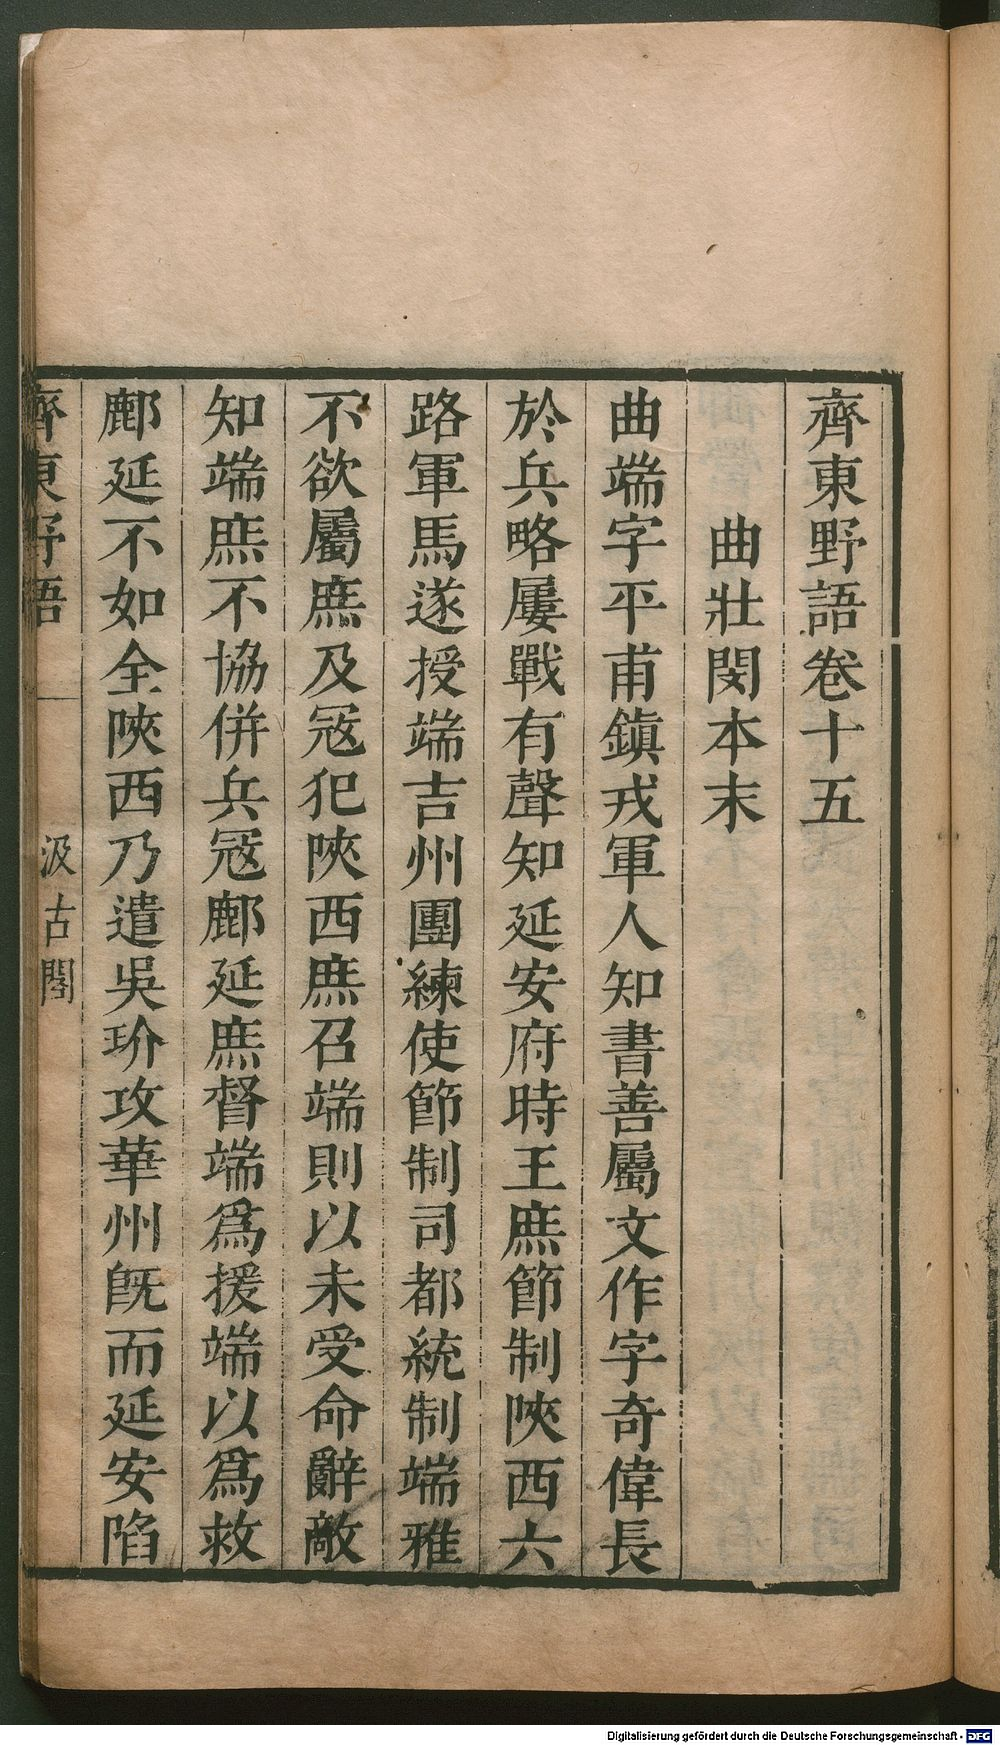 齊東野語卷十五
曲壯閔本末
曲端字平甫鎮戎軍人知書善屬文作字奇偉長
於兵略屢戰有聲知延安府時王庶節制陝西六
路軍馬遂授端吉州團練使節制司都統制端雅
不欲屬庶及冦犯陝西庶召端則以未受命辭敵
知端庶不協併兵冦鄜延庶督端爲援端以爲救
鄜延不如全陝西乃遣吳玠攻華州旣而延安陷
齊東野語
汲古閣
Digitalisierung gefördert durch die Deutsche Forschungsgemeinschaft - DFG